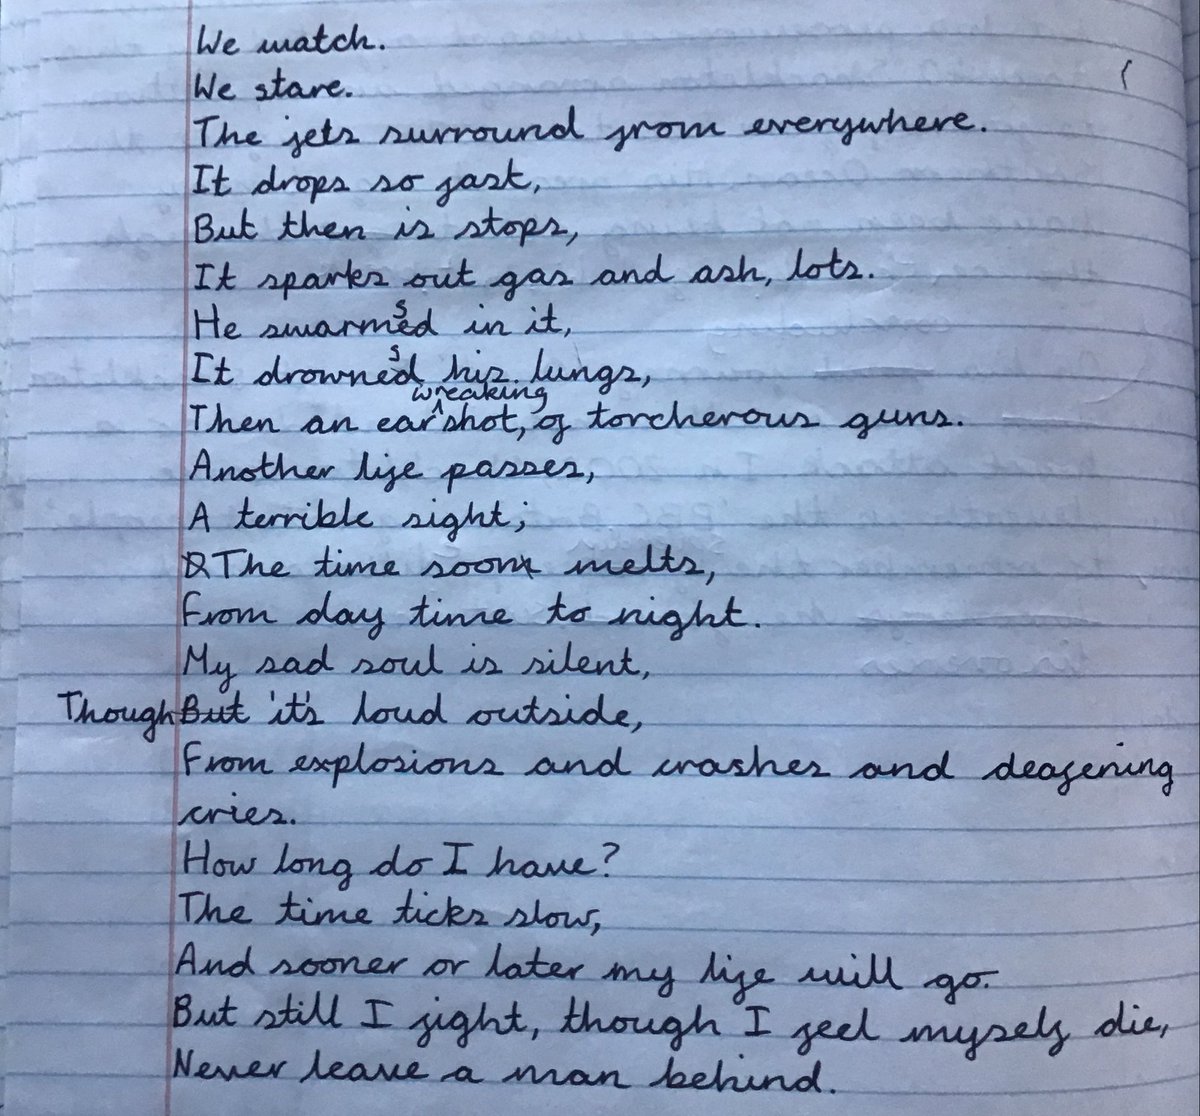 We watch.
We stare.
The jets surround from everywhere.
It drops so fast,
But then is stops,
It sparks out gas and ash, lots.
He swarms in it,
It drowns his lungs,
Then an ear wreaking shot, of torcherous guns.
Another life passes,
A terrible sight;
The time soon melts,
From day time to night.
My sad soul is silent,
Though it's loud outside,
From explosions and crashes and deafening
cries.
How long do I have?
The time ticks slow,
And sooner or later my life will go.
But still I fight, though I feel myself die,
Never leave a man behind.